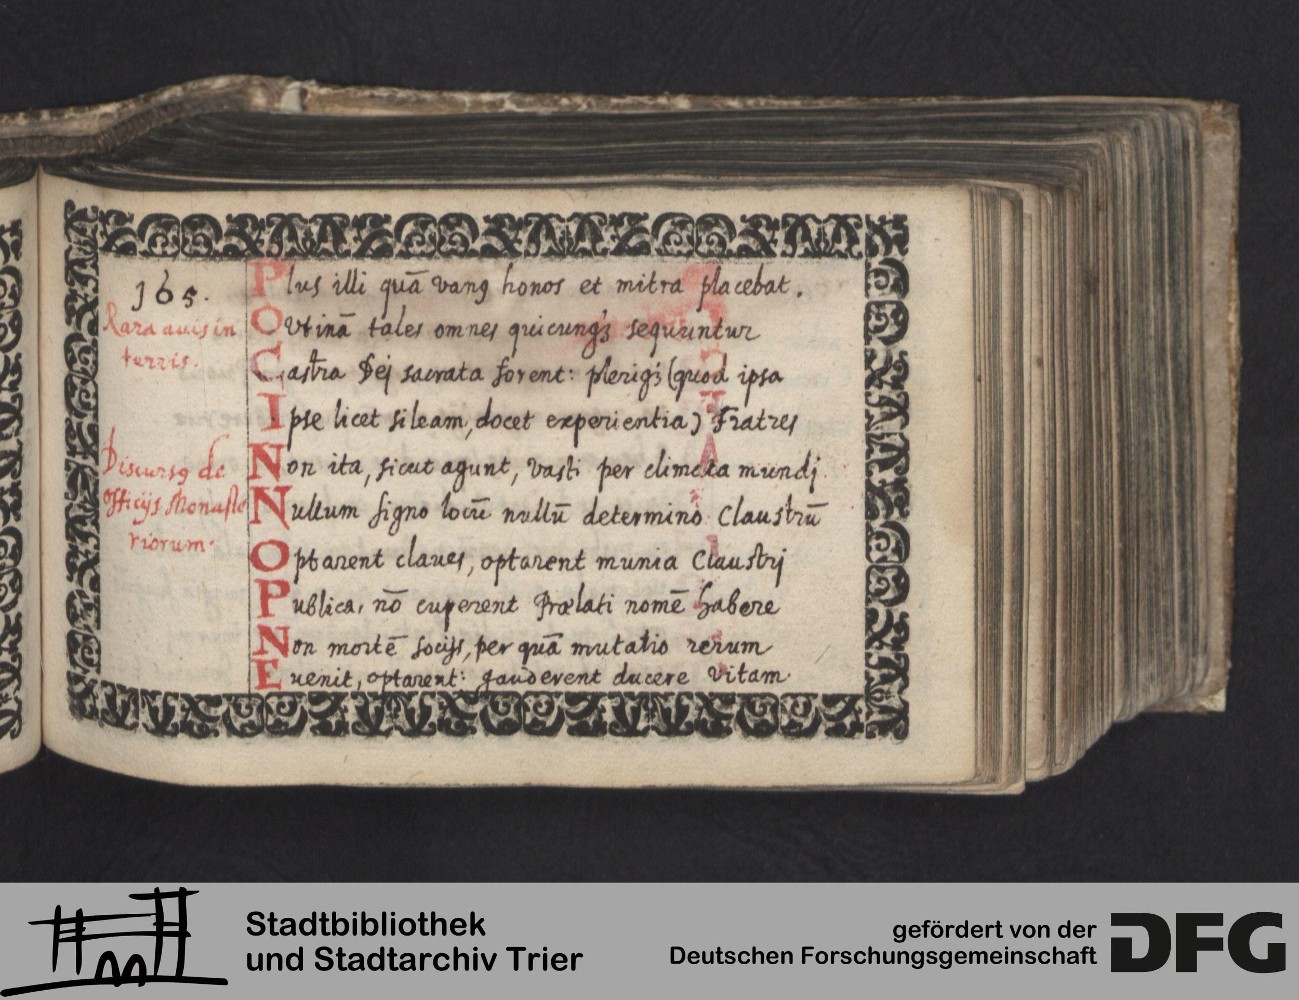 165.
Rara auis in
terris.
Discursꝯ de
officijs Monaste
riorum.
Plus illi quā vanꝯ honos et mitra placebat.
O vtinā tales omnes quicunqꝫ sequuntur
Castra Dej sacrata forent: pleriqꝫ (quod ipsa
Ipse licet sileam, docet experientia) Fratres
Non ita, sicut agunt, vasti per climata mundj
Nullum signo locū nullū determino Claustrū
Optarent claues, optarent munia Claustrj
Publica, nō cuperent Prælati nomē habere
Non mortē socijs, per quā mutatio rerum
Euenit, optarent: gauderent ducere vitam.
Stadtbibliothek
und Stadtarchiv Trier
gefördert von der
Deutschen Forschungsgemeinschaft
DFG